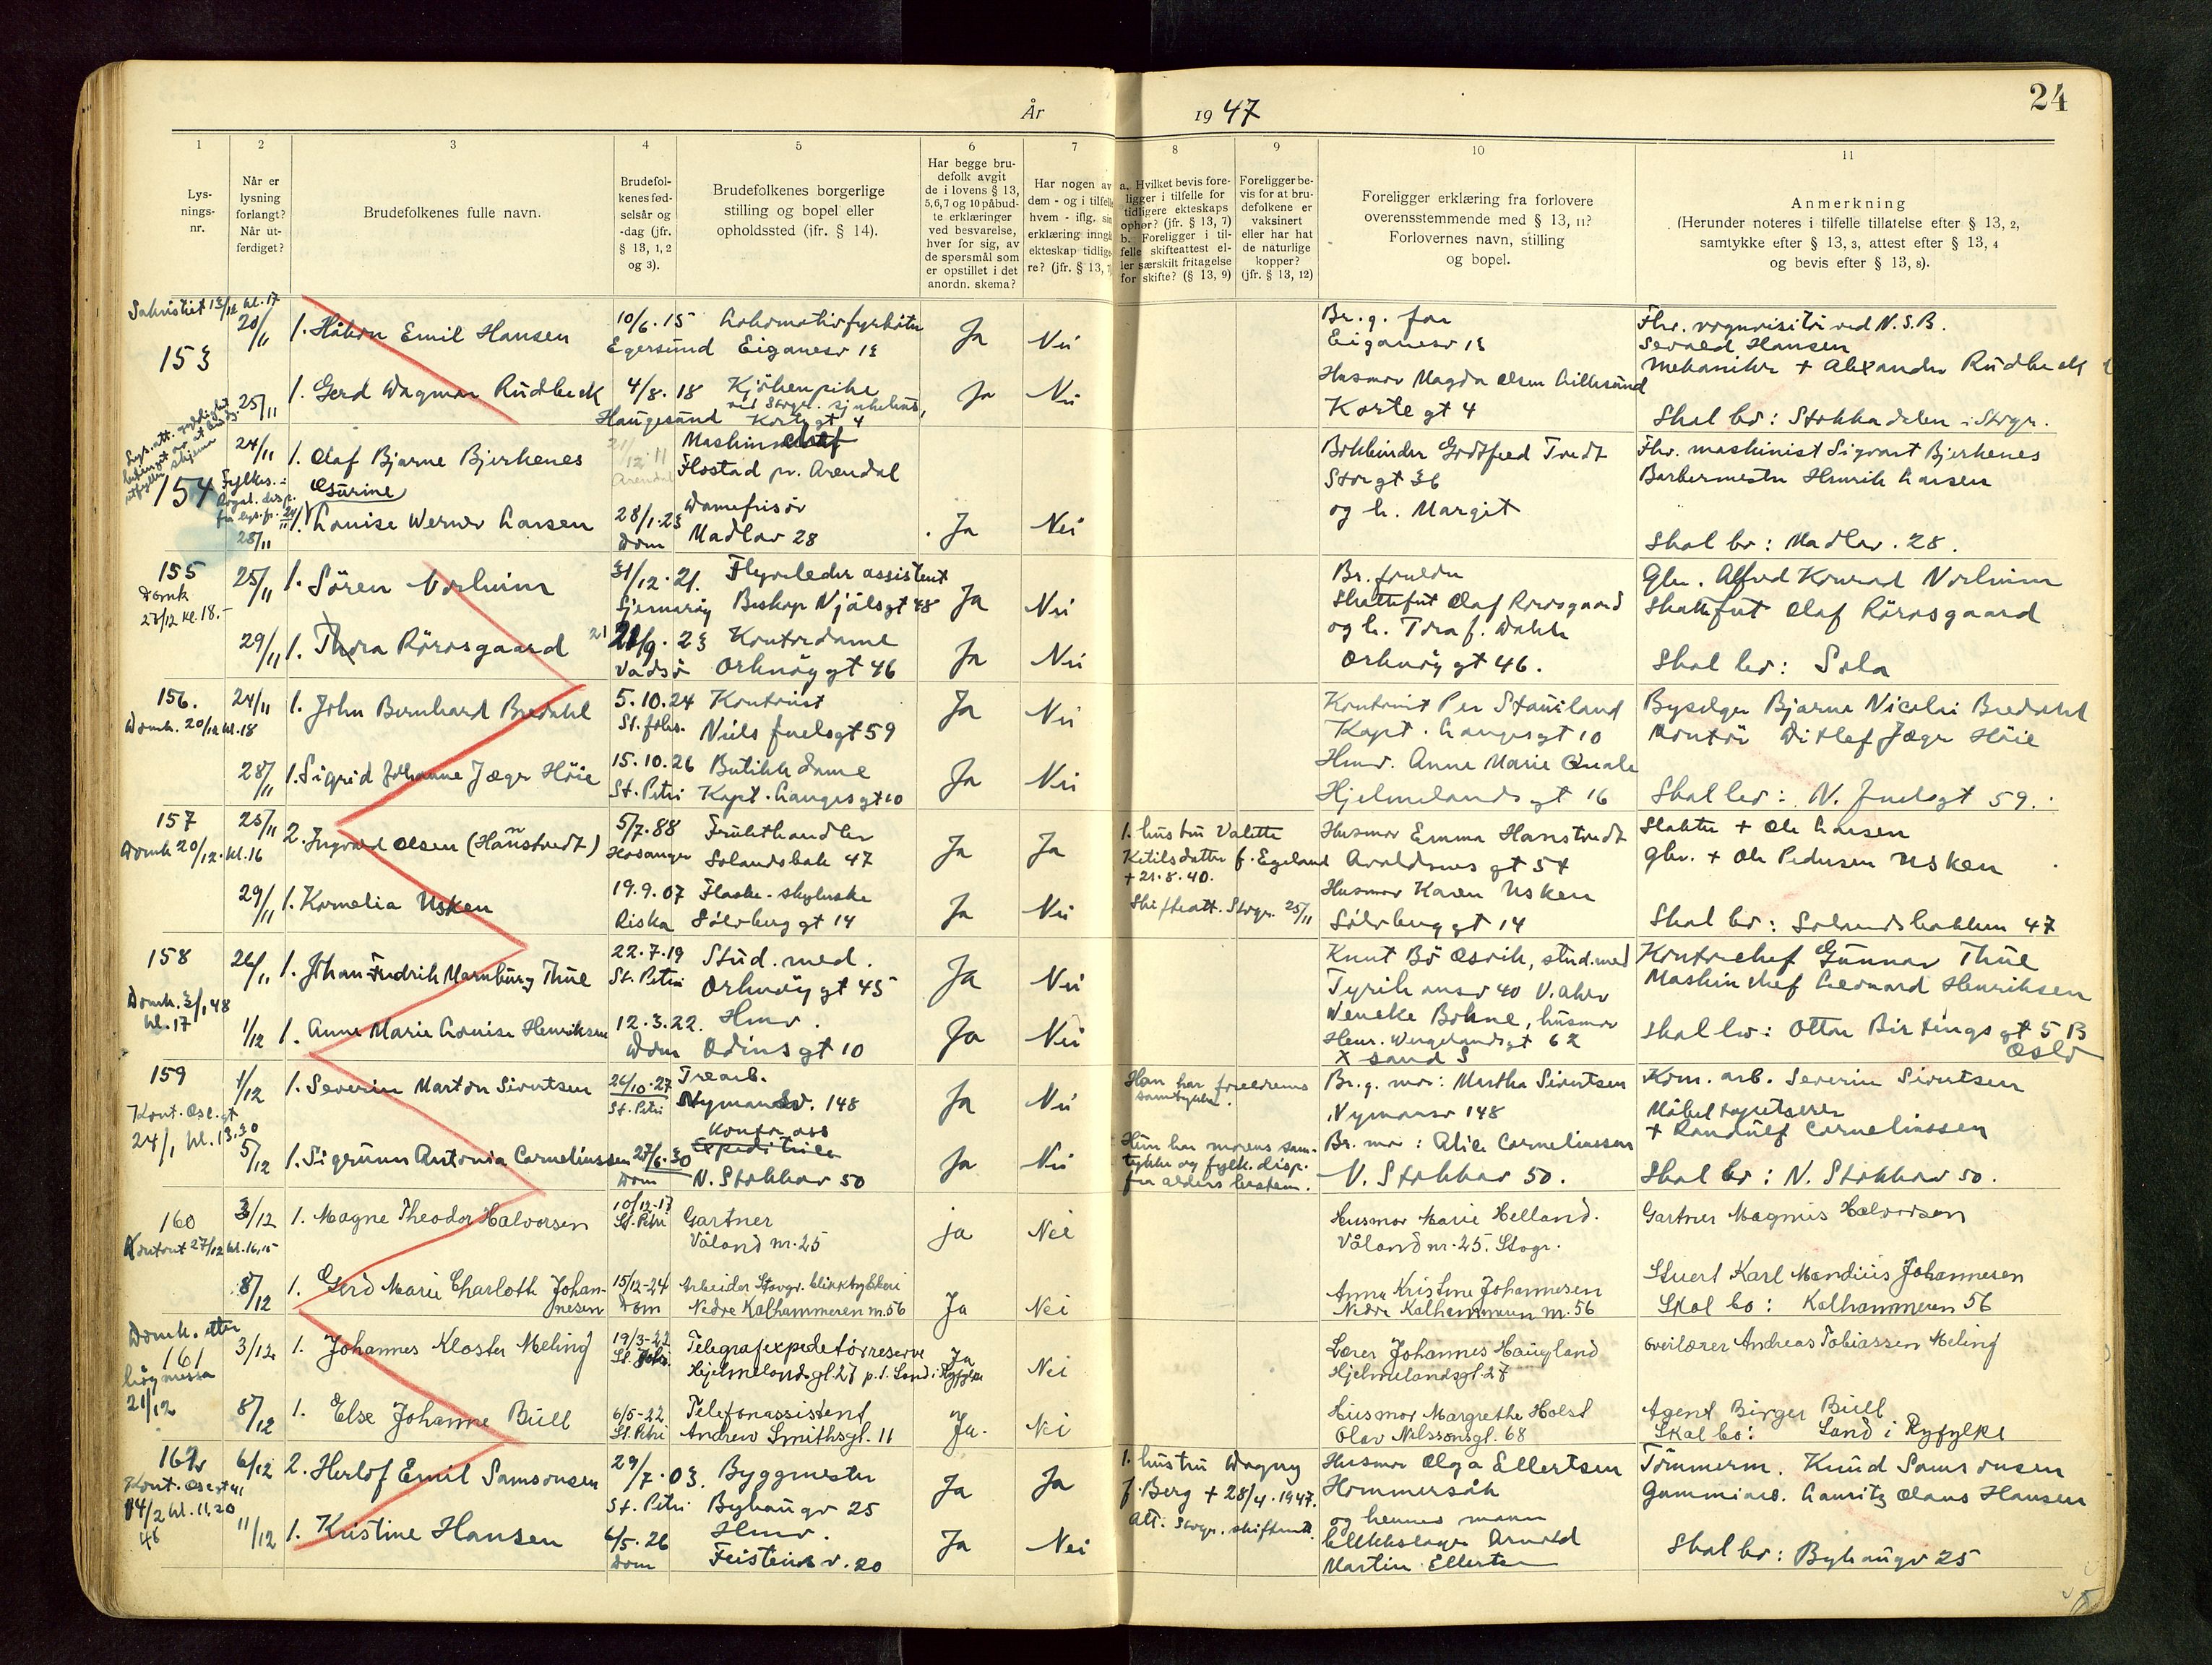 24
År 1947
1
2
3
4
5
6
7
8
9
10
11
Lys-
nings-
nr.
Når er
lysning
forlangt?
Når ut-
ferdiget?
Brudefolkenes fulle navn.
Brudefol-
kenes fød-
selsår og
-dag (jfr.
§ 13, 1, 2
og 3).
Brudefolkenes borgerlige
stilling og bopel eller
opholdssted (jfr. § 14).
Har begge bru-
defolk avgit
de i lovens § 13,
5,6,7 og 10 påbud-
te erklæringer
ved besvarelse,
hver for sig, av
de spørsmål som
er opstillet i det
anordn. skema?
Har nogen av
dem - og i tilfelle
hvem - iflg. sin
erklæring inngå
ekteskap tidlige
re? (jfr. § 13, 7)
a. Hvilket bevis fore-
ligger i tilfelle for
tidligere ekteskaps
ophør? (jfr. § 13, 7)
b. Foreligger i til-
felle skifteattest el-
ler særskilt fritagelse
for skifte? (§ 13, 9)
Foreligger be-
vis for at bru-
defolkene er
vaksinert
eller har hat
de naturlige
kopper?
(jfr. § 13, 12)
Foreligger erklæring fra forlovere
overensstemmende med § 13, 11?
Forlovernes navn, stilling
og bopel.
Anmerkning
(Herunder noteres i tilfelle tillatelse efter § 13, 2,
samtykke efter § 13, 3, attest efter § 13, 4
og bevis efter § 13, 8).
Sakristiet 13/12 kl. 17
153
20/11 1. Håkon Emil Hansen 10/6.15 Lokomotivfyrbøter Ja Nei
Egersund Eiganesv 13
Br.g. far
Eiganesv 13
Fhv. vognvisitør ved N.S.B.
Sevald Hansen
25/11 1. Gerd Dagmar Rudbeck 4/8.18 Kjøkenpike Ja Nei
Haugesund Kortegt 4
Husmor Magda Olsen
Kortegt 4
Mekaniker + Alexander Rudbeck
Skal bo: Stokkadalen i Stvgr.
154
24/11 1. Olaf Bjarne Bjerkenes 21/12.11 Arendal
Flostad pr. Arendal
Bokbinder Godtfred Tvedt
Storgt 36
og h. Margit
Fhv. maskinist Sigvart Bjerkenes
Barbermester Henrik Larsen
28/11 1. Louise Werner Larsen 28/1.23 Damefrisør Ja Nei
Dom Madlav 28
Skal bo: Madlav. 28.
155
Domk
27/12 kl. 18.-
25/11 1. Sören Norheim 31/12.21. Flyveleder assistent Ja Nei
Sjernarøy Biskop Njålsgt 48
Br. foreldre
Skattefut Olaf Rörosgaard
og h. Tora f. Dahle
Orknøygt 46.
Gbr. Alfred Konrad Norheim
Skattefut Olaf Rörosgaard
29/11 1. Thora Rörosgaard 21/9.23 Kontordame Ja Nei
Vadsö Orknøygt 46
Skal bo: Sola
156.
Domk. 20/12 kl. 18
24/11 1. John Bernhard Bredahl 5.10.24 Kontorist Ja Nei
St. Johs. Niels Juelsgt 59
Kontorist Per Stauland
Kapt. Langesgt 10
Byselger Bjarne Nicolai Bredahl
Kontör Ditlef Jæger Höie
28/11 1. Sigrid Johanne Jæger Höie 15.10.26 Butikkdame Ja Nei
St. Petri Kapt. Langesgt 10
Hmv. Anne Marie Qvale
Hjelmelandsgt 16
Skal bo: N. Juelsgt 59.
157
Domk 20/12. kl. 16
25/11 2. Ingvald Olsen (Hanstvedt) 5/7.88 Frukthandler Ja Ja
Hosanger Solandsbak 47
1. hustru Valette
Ketilsdatter f. Egeland
+ 21.8.40.
Skifteatt. Stvgr. 25/11
Husmor Emma Hanstvedt
Avaldsnesgt 54
Slakter + Ole Larsen
Gbr. + Ole Pedersen Usken
29/11 1. Kornelia Usken 19.9.07 Flaske-skylerske Ja Nei
Riska Sölvberggt 14
Husmor Karen Usken
Sölvberggt 14
Skal bo: Solandsbakken 47
158
Domk. 3/1 48
kl. 17
26/11 1. Johan Fredrik Marnburg Thue 22.7.19 Stud. med. Ja Nei
St. Petri Orknøygt 45
Knut Bö Osvik, stud. med
Tyrihansv 40 V. aker
Kontorchef Gunnar Thue
Maskinchef Leonard Henriksen
1/12 1. Anne Marie Louise Henriksen 12.3.22. Hmv. Ja Nei
Dom Odinsgt 10
Wencke Bohne, husmor
Henr. Wergelandsgt 62
X sand S
Skal bo: Ottar Birtingsgt 5 B
Oslo
159
Kont. Ose. gt
24/1 kl. 13.30
1/12 1. Severin Marton Sivertsen 26/10.27 Trearb. Ja Nei
St. Petri Nymansv. 148
Han har foreldrenes
samtykke.
Br.g. mor: Martha Sivertsen
Nymansv 148
Kom. arb. Severin Sivertsen
Möbeltapetserer
+ Randulf Corneliussen
5/12 1. Sigrunn Antonia Corneliussen 27/6.30 Kontor ass Ja Nei
Dom N. Stokkav 50
Hun har morens sam-
tykke og fylk. disp.
fra alders bestem.
Br. mor: Alice Corneliussen
N. Stokkav 50.
Skal bo: N. Stokkav 50.
160
Kontoret 27/12 kl. 16,15
3/12 1. Magne Theodor Halvorsen 10/12-17 Gartner ja Nei
St. Petri Våland nr. 25
Husmor Marie Helland.
Våland nr. 25. Stvgr.
Gartner Magnus Halvorsen
8/12 1. Gerd Marie Charlotte Johan-
nesen 15/12-24 Arbeider Stavgr. blikktrykkeri Ja Nei
Dom Nedre Kalhammeren nr. 56
Anna Kristine Johannesen
Nedre Kalhammeren nr. 56
Stuert Karl Mandius Johannesen
Skal bo: Kalhammeren 56
Domk. etter
161
høymessa
21/12
3/12 1. Johannes Kloster Meling 19/3-22 Telegrafexpeditørreserve Ja Nei
St. Johs. Hjelmelandsgt. 27 p.t. Sand i Ryfylke
Lærer Johannes Haugland
Hjelmelandsgt. 27
Overlærer Andreas Tobiassen Meling
8/12 1. Else Johanne Bull 6/5-22 Telefonassistent Ja. Nei
St. Petri Andrew Smithsgt. 11
Husmor Margrethe Holst
Olav Nilssonsgt. 68
Agent Birger Bull
Skal bo: Sand i Ryfylke
162
14/2 kl. 11.20
48
6/12 2. Herlof Emil Samsonsen 29/7.03. Byggmester Ja Ja
St. Petri Byhaugv 25
1. hustru Dagny
f. Berg + 28/4.1947.
Att. Stvgr. skifterett.
Husmor Olga Ellertsen
Hommersåk
og hennes mann
blikkslager Arnold
Martin Ellertsen
Tömmerm. Knud Samsonsen
Gummiarb. Lauritz Olaus Hansen
11/12 1. Kristine Hansen 6/5.26 Hmv. Ja Nei
Dom Feisteinsv. 20
Skal bo: Byhaugv 25